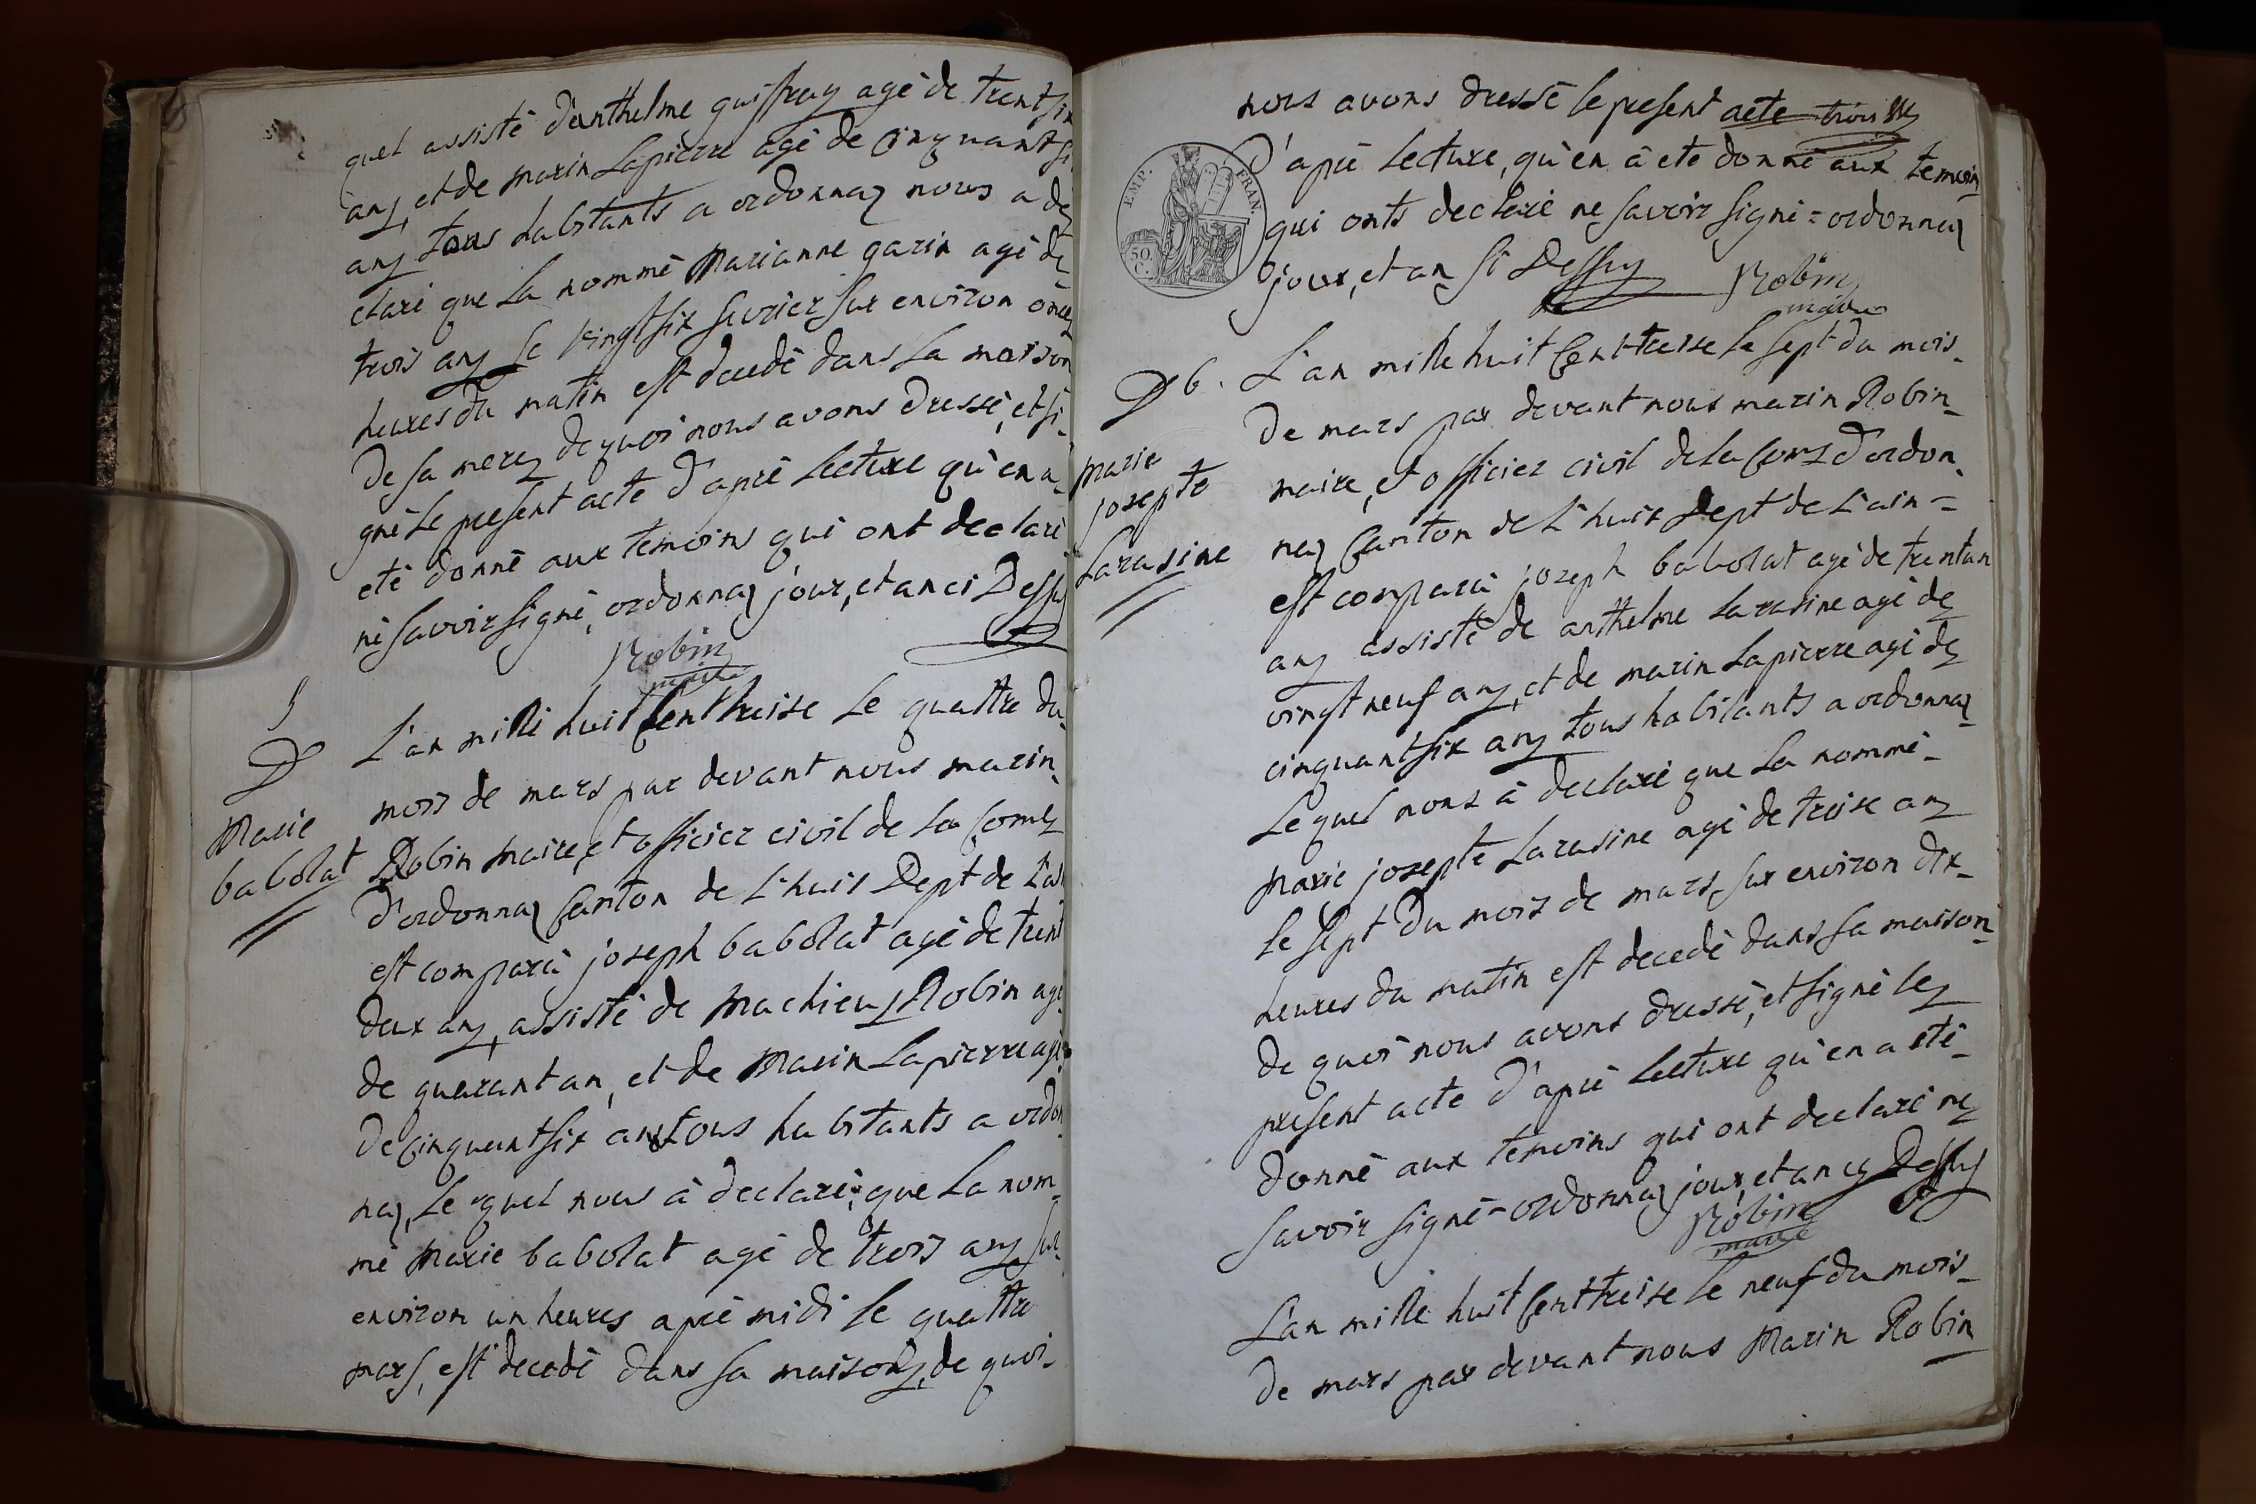 quel assisté d'anthelme guiffray agé de trentsix
ans, et de marin Lapierre agé de cinquantsi
ans tous habitants a ordonnaz nous a de
claré que la nommé Marianne garin agé de
trois ans le vingtsix fevrier sur environ onze
heures du matin est decedé dans la maison
De sa mere, de quoi nous avons dressé, et si-
gné le present acte d'aprè lecture qu'en a-
eté donné aux temoins qui ont declaré
né savoir signé, ordonnaz jour, et an ci Dessus
Robin
maire
5
D
Marie
babolat
L'an mille huit Cent treise le quattre du-
mois de mars par devant nous marin-
Robin maire, et officier civil de la Come
D'ordonnaz Canton de L'huis Dept de L'ain
est comparu joseph babolat agé de trent
deux ans, assisté de Machieu Robin agé
de quarant an, et de Marin Lapierre agé
De cinquantsix ans tous habitants a ordon
naz, Le quel nous à declaré, que La nom-
mé Marie babolat agé de trois ans sur-
environ un heures aprè midi le quattre
mars, est decedé dans sa maison, de quoi-
nous avons dressé le present acte
EMP. FRAN.
50
C.
D'aprè Lecture, qu'en à ete donné aux temoin
qui onts declaré ne savoir signé = ordonnaz
jour, et an si Dessus
Robin
maire
D 6.
Marie
josepte
Larasine
L'an mille huit Cent-treise le sept du mois-
De mars par devant nous marin Robin-
maire, et officier civil de la Come D'ordon-
naz Canton de L'huis Dept de L'ain =
est comparu joseph babolat agé de trentun
ans assisté de anthelme Larasine agé de
vingtneuf ans, et de marin Lapierre agé de
cinquantsix ans tous habitants a ordonnaz-
Lequel nous à declaré que La nommé-
Marie josepte Larasine agé de treise ans
le sept Du mois de mars sur environ dix-
heures du matin est decedé dans sa maison-
De quoi nous avons dressé, et signé le
present acte D'aprè lecture qu'en a eté-
Donné aux temoins qui ont declaré ne
savoir signé - ordonnaz jour, et an cy Dessus
Robin
maire
L'an mille huit Cent treise le neuf du mois-
De mars par devant nous Marin Robin